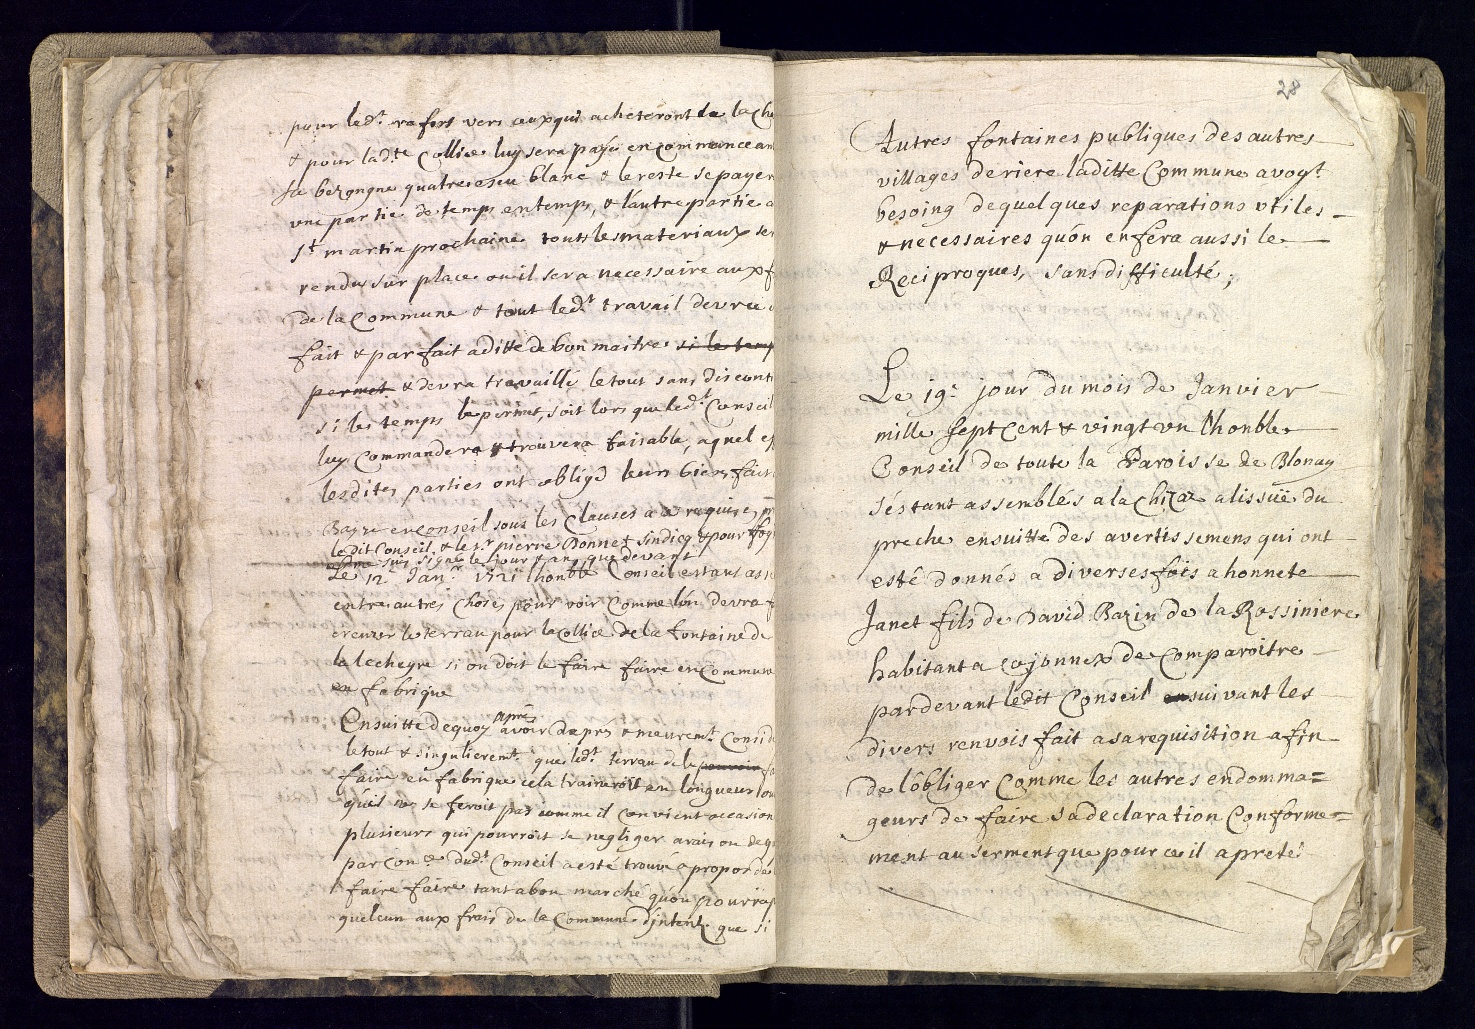 pour led.t rafort vers ceux qui acheteront de la Che
& pour lad.te Collice luy sera payé en commanceant
sa bezongne quatre escu blanc & le reste se payer
une partie de temps en temps, & l'autre partie a
S.t martin prochaine tout les materiaux se
rendus sur place ou il sera necessaire aux f
de la Commune & tout led.t travail devra e
fait & parfait a ditte de bon maitre si le temp
permet & devra travaillé le tout sans disconti
si les temps le permet, soit lors que led.t Conseil
luy Commandera & trouvera faisable, a quel ef
lesdites parties ont obligé leurs biens, fait
en Conseil sous les Clauses a ce requises
ledit Conseil, & le s.r pierre Bonnet sindicq & pour
le jour & an que devant
Le 12.e Jan.r 1721 l'honble Conseil estant ass
entre autres Choses pour voir Comme l'on devra f
creuzer le terrau pour la Collice de la fontaine de
la lecheyre si on doit le faire faire en Commune
en fabrique
Ensuitte dequoy après avoir & meurem.t Consid
le tout & singulierem.t que led.t terrau de le fa
faire en fabrique cela traineroit en longueur
qu'il ne se feroit pas comme il convient occasion
plusieurs qui pourroit se negliger
par Con.e dud.t Conseil a esté trouvé a propos de
faire faire tant a bon marché qu'on pourra p
quelcun aux frais de la Commune d'intent. que si
28
Autres fontaines publiques des autres
villages de riere laditte Commune avoy.t
besoing de quelques reparations utiles
& necessaires qu'on en fera aussi le
Reciproques, sans difficulté;
Le 19.e jour du mois de Janvier
mille Sept Cent & vingt un l'honble
Conseil de toute la Paroisse de Blonay
s'estant assemblés a la Chizaz a lissüe du
preche ensuitte des avertissemens qui ont
esté donnés a diverses fois a honnete
Janet fils de David Bazin de la Rossiniere
habitant a Cojonnex de Comparoitre
pardevant ledit Conseil en suivant les
divers renvois fait a sa requisition afin
de lôbliger Comme les autres endomma=
geurs de faire sa declaration Conforme=
ment au serment que pour ce il a preté.